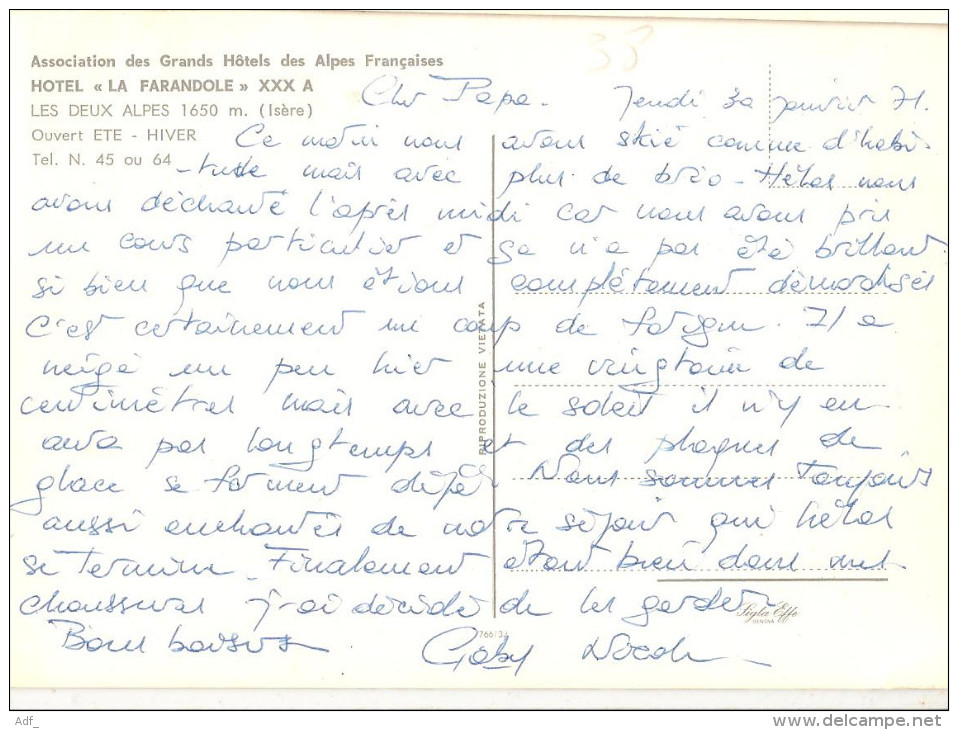 33
Association des Grands Hôtels des Alpes Françaises
HOTEL « LA FARANDOLE » XXX A
LES DEUX ALPES 1650 m. (Isère)
Ouvert ETE - HIVER
Tel. N. 45 ou 64
Cher Papa - Jeudi janvier 71.
Ce matin nous avons skié comme d'habi-
-tude mais avec plus de brio - Hélas nous
avons déchanté l'après midi car nous avons pris
un cours particulier et ça n'a pas été brillant
si bien que nous étions complètement démoralisés
C'est certainement un coup de fatigue. Il a
neigé un peu hier une vingtaine de
centimètres mais avec le soleil il n'y en
aura pas longtemps et des plaques de
glace se forment déjà. Nous sommes toujours
aussi enchantés de notre séjour qui hélas
se termine - Finalement étant bien dans mes
chaussures j'ai décidé de les garder
Bons baisers Gaby Nicole
RIPRODUZIONE VIETATA
Sigla Effe
GENOVA
Adf_
www.delcampe.net